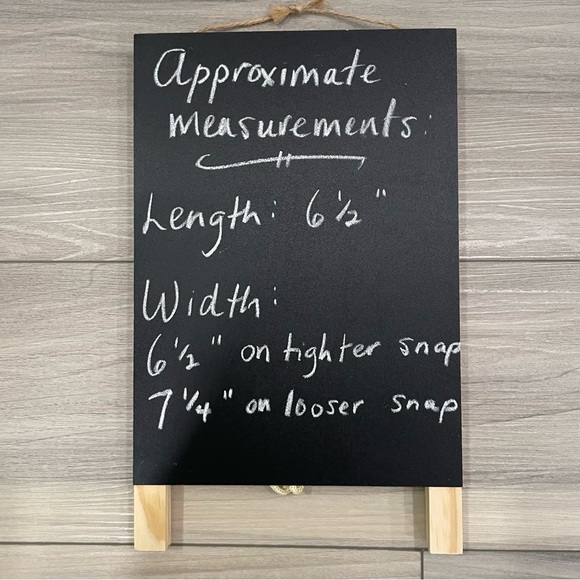 Approximate
measurements:
Length: 6 1/2"
Width:
6 1/2" on tighter snap
7 1/4" on looser snap